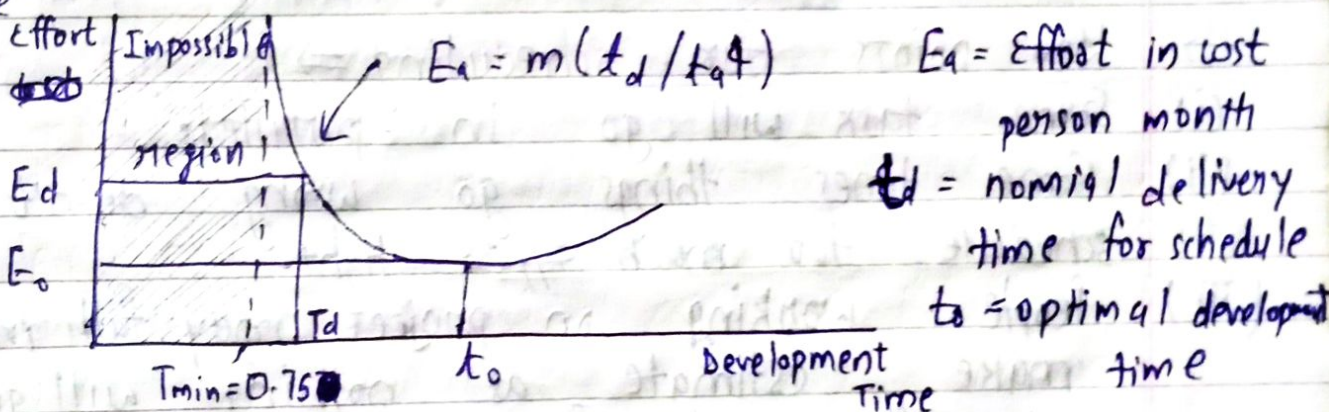 Effort
Impossible
region
Ea = m(td/ta4)
Ed
Eo
Td
Tmin=0.75
to
Development
Time
Ea = Effoot in cost
person month
td = nomial delivery
time for schedule
to = optimal development
time